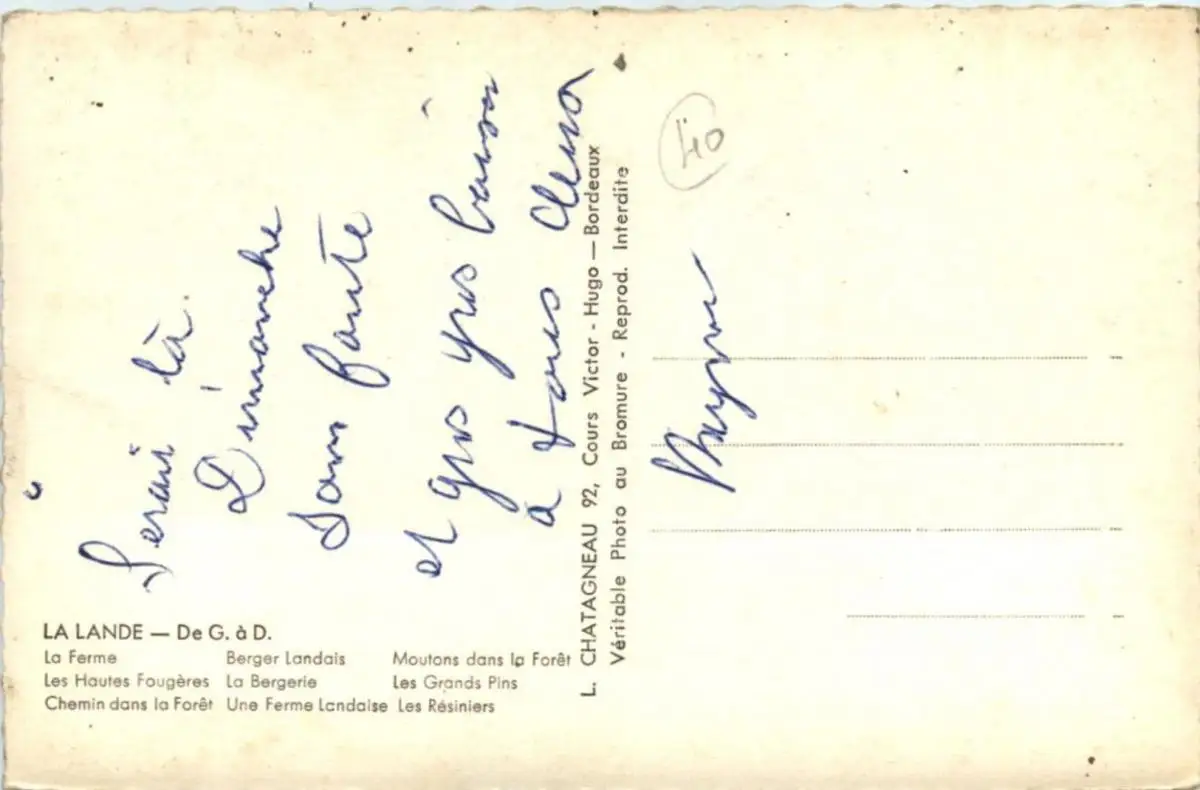 Serai là
Dimanche
sans faute
et gros gros baisers
à tous deux
40
LA LANDE — De G. à D.
La Ferme Berger Landais Moutons dans la Forêt
Les Hautes Fougères La Bergerie Les Grands Pins
Chemin dans la Forêt Une Ferme Landaise Les Résiniers
L. CHATAGNEAU 92, Cours Victor - Hugo — Bordeaux
Véritable Photo au Bromure - Reprod. Interdite